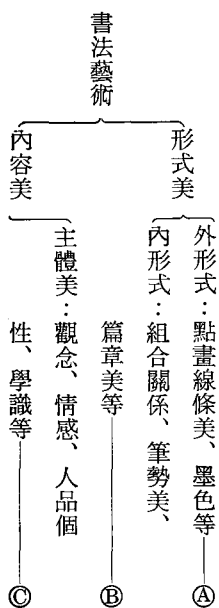 書法藝術
形式美
外形式：點畫線條美、墨色等——Ⓐ
內形式：組合關係、筆勢美、
篇章美等——Ⓑ
內容美
主體美：觀念、情感、人品個
性、學識等——Ⓒ